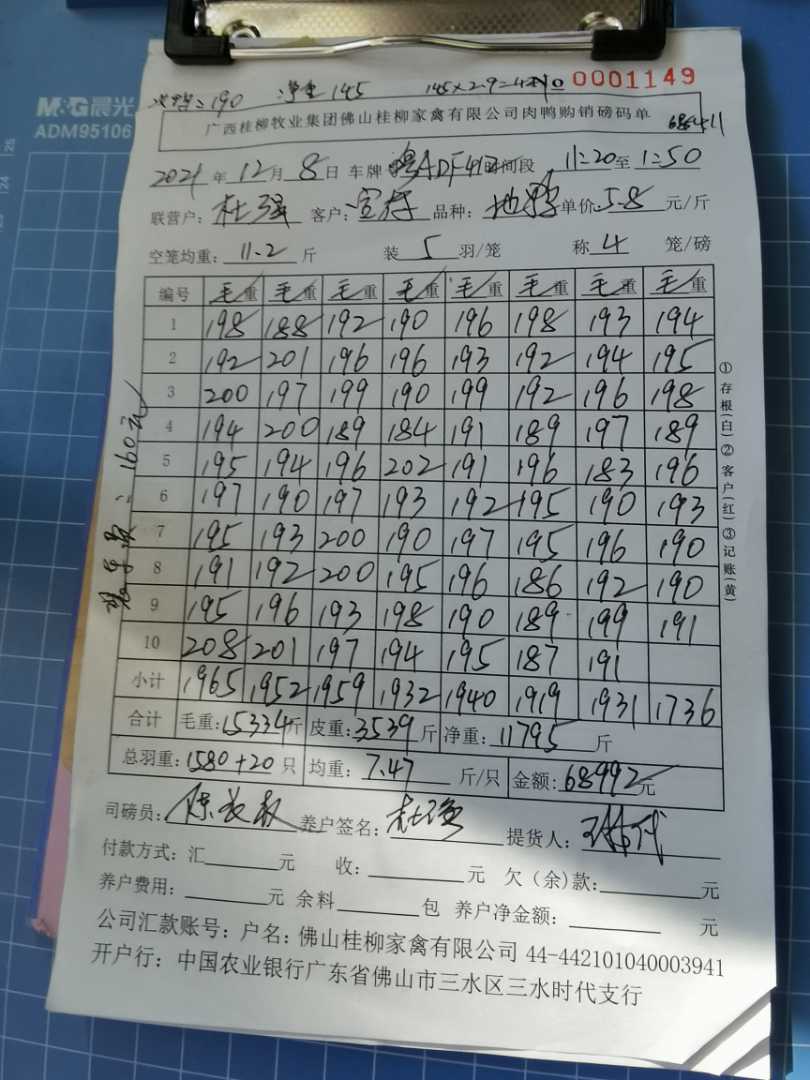 M&G晨光
ADM95106
190 净重 145 145×2.9=4 No 0001149
广西桂柳牧业集团佛山桂柳家禽有限公司肉鸭购销磅码单
2021年12月8日 车牌 时间段 11:20至1:50
联营户：杜强 客户： 品种： 单价：5.8元/斤
空笼均重：11.2斤 装5羽/笼 称4笼/磅
编号 毛重 毛重 毛重 毛重 毛重 毛重 毛重 毛重
1 198 188 192 190 196 198 193 194
2 192 201 196 196 193 192 194 195
3 200 197 199 190 199 192 196 198
4 194 200 189 184 191 189 197 189
5 195 194 196 202 191 196 183 196
6 197 190 197 193 192 195 190 193
7 195 193 200 190 197 195 196 190
8 191 192 200 195 196 186 192 190
9 195 196 193 198 190 189 199 191
10 208 201 197 194 195 187 191
小计 1965 1952 1959 1932 1940 1919 1931 1736
合计 毛重：15334斤 皮重：3539斤 净重：11795斤
总羽重：1580+20只 均重：7.47斤/只 金额：68992元
司磅员： 养户签名：杜强 提货人：
付款方式：汇 元 收： 元 欠（余）款： 元
养户费用： 元 余料 包 养户净金额： 元
公司汇款账号：户名：佛山桂柳家禽有限公司 44-442101040003941
开户行：中国农业银行广东省佛山市三水区三水时代支行
①存根(白)②客户(红)③记账(黄)
160元